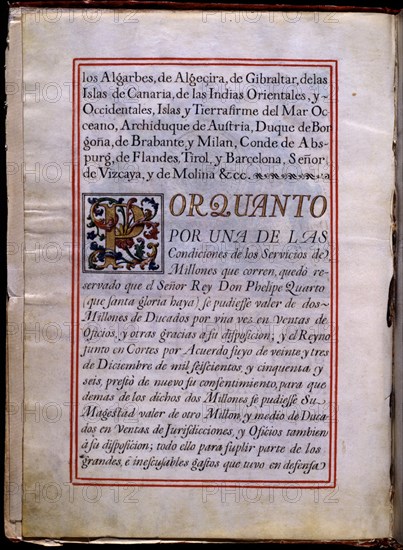 los Algarbes, de Algeçira, de Gibraltar, delas
Islas de Canaria, de las Indias Orientales, y
Occidentales, Islas y Tierrafirme del Mar Oc
ceano, Archiduque de Austria, Duque de Bor
goña, de Brabante, y Milan, Conde de Abs-
purg, de Flandes, Tirol, y Barcelona, Señor
de Vizcaya, y de Molina &cc.
PORQUANTO
POR UNA DE LAS
Condiciones de los Servicios de
Millones que corren, quedó re-
servado que el Señor Rey Don Phelipe Quarto
(que santa gloria haya) se pudiesse valer de dos
Millones de Ducados por vna vez en Ventas de
Oficios, y otras gracias a su disposicion; y el Reyno
junto en Cortes por Acuerdo suyo de veinte y tres
de Diciembre de mil seiscientos, y cinquenta, y
seis, prestó de nuevo su consentimiento, para que
demas de los dichos dos Millones se pudiesse Su
Magestad valer de otro Millon, y medio de Duca
dos en Ventas de Jurisdicciones, y Oficios tambien
à su disposicion; todo ello para suplir parte de los
grandes, è inescusables gastos que tuvo en defensa
PHOTO12